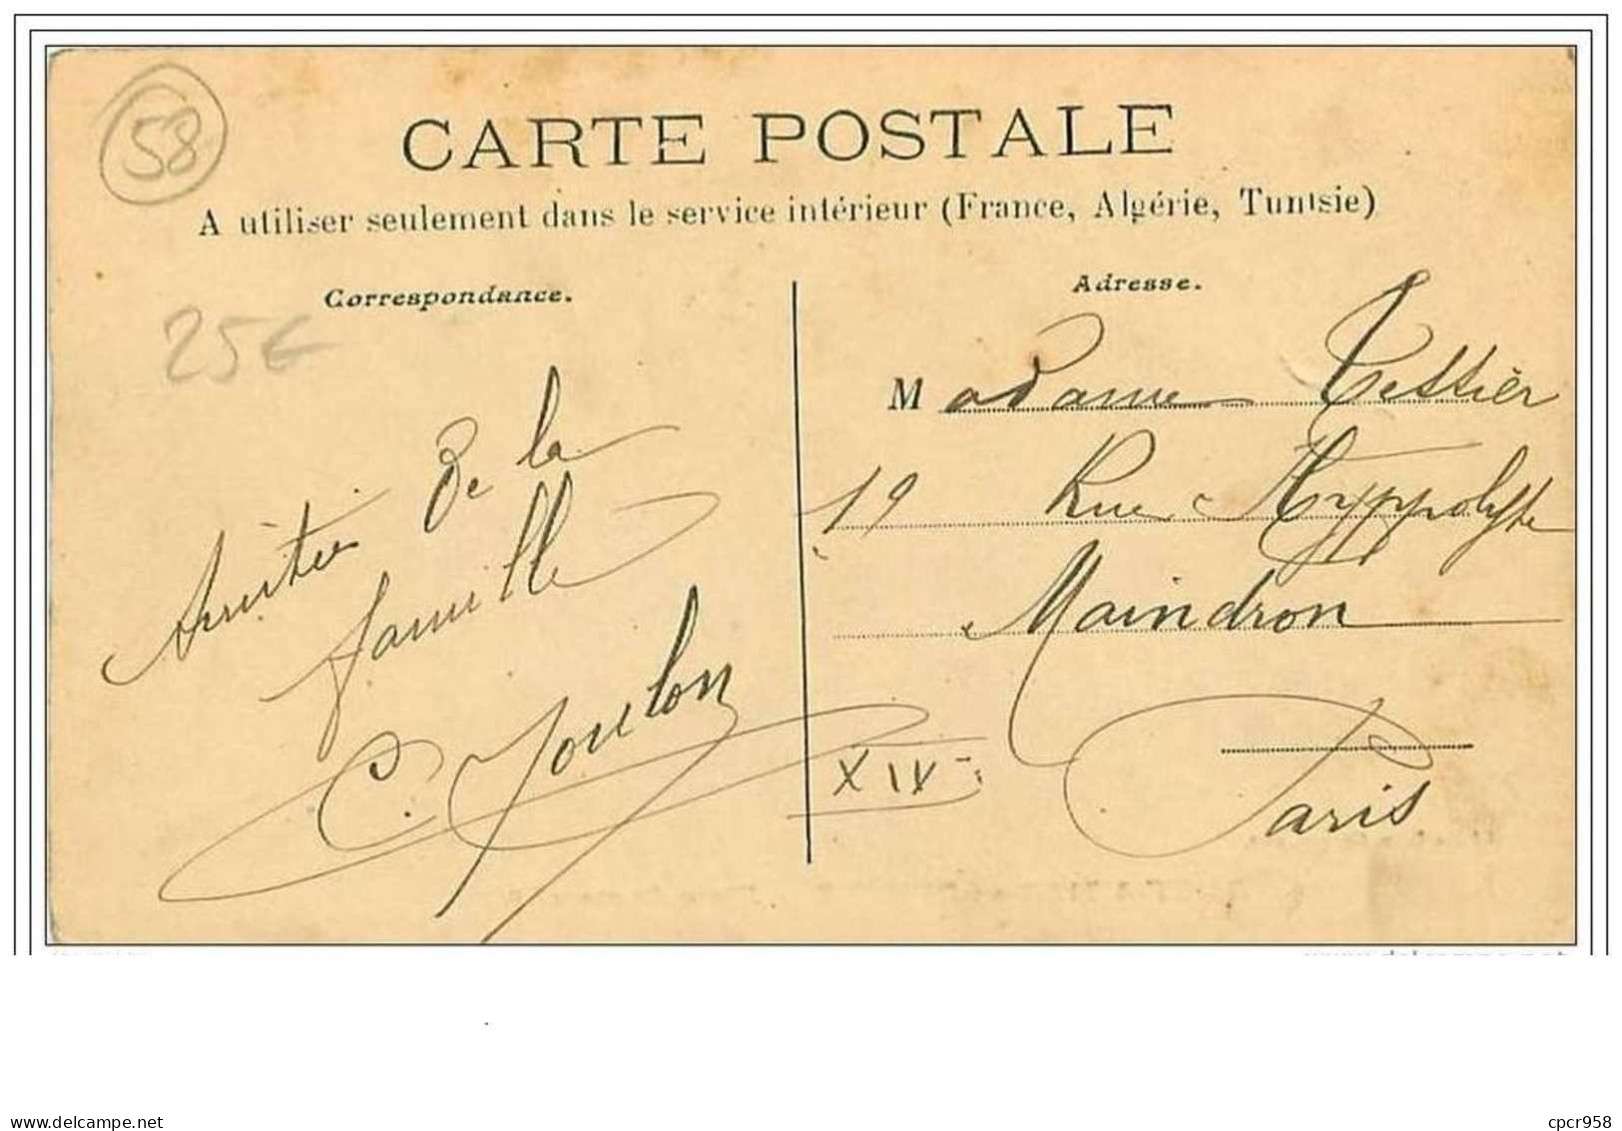 58
CARTE POSTALE
A utiliser seulement dans le service intérieur (France, Algérie, Tunisie)
Correspondance.
25€
Amitié de la
famille
C. Toulon
Adresse.
Madame Tessier
19 Rue Hyppolyte
Maindron
Paris
XIV
delcampe.net
cpcr958